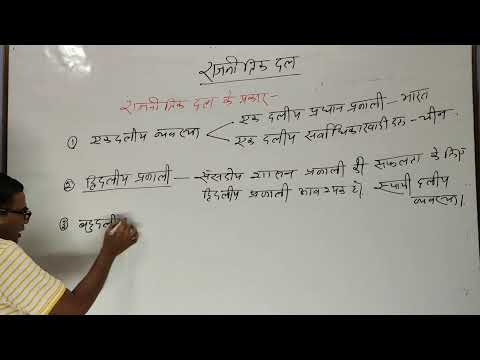 राजनीतिक दल
राजनीतिक दल के प्रकार-
① एकदलीय व्यवस्था < एक दलीय प्रधान प्रणाली - भारत
एक दलीय सर्वाधिकारवादी दल - चीन
② द्विदलीय प्रणाली - संसदीय शासन प्रणाली की सफलता के लिए
द्विदलीय प्रणाली आवश्यक है। स्थायी दलीय
व्यवस्था।
③ बहुदली